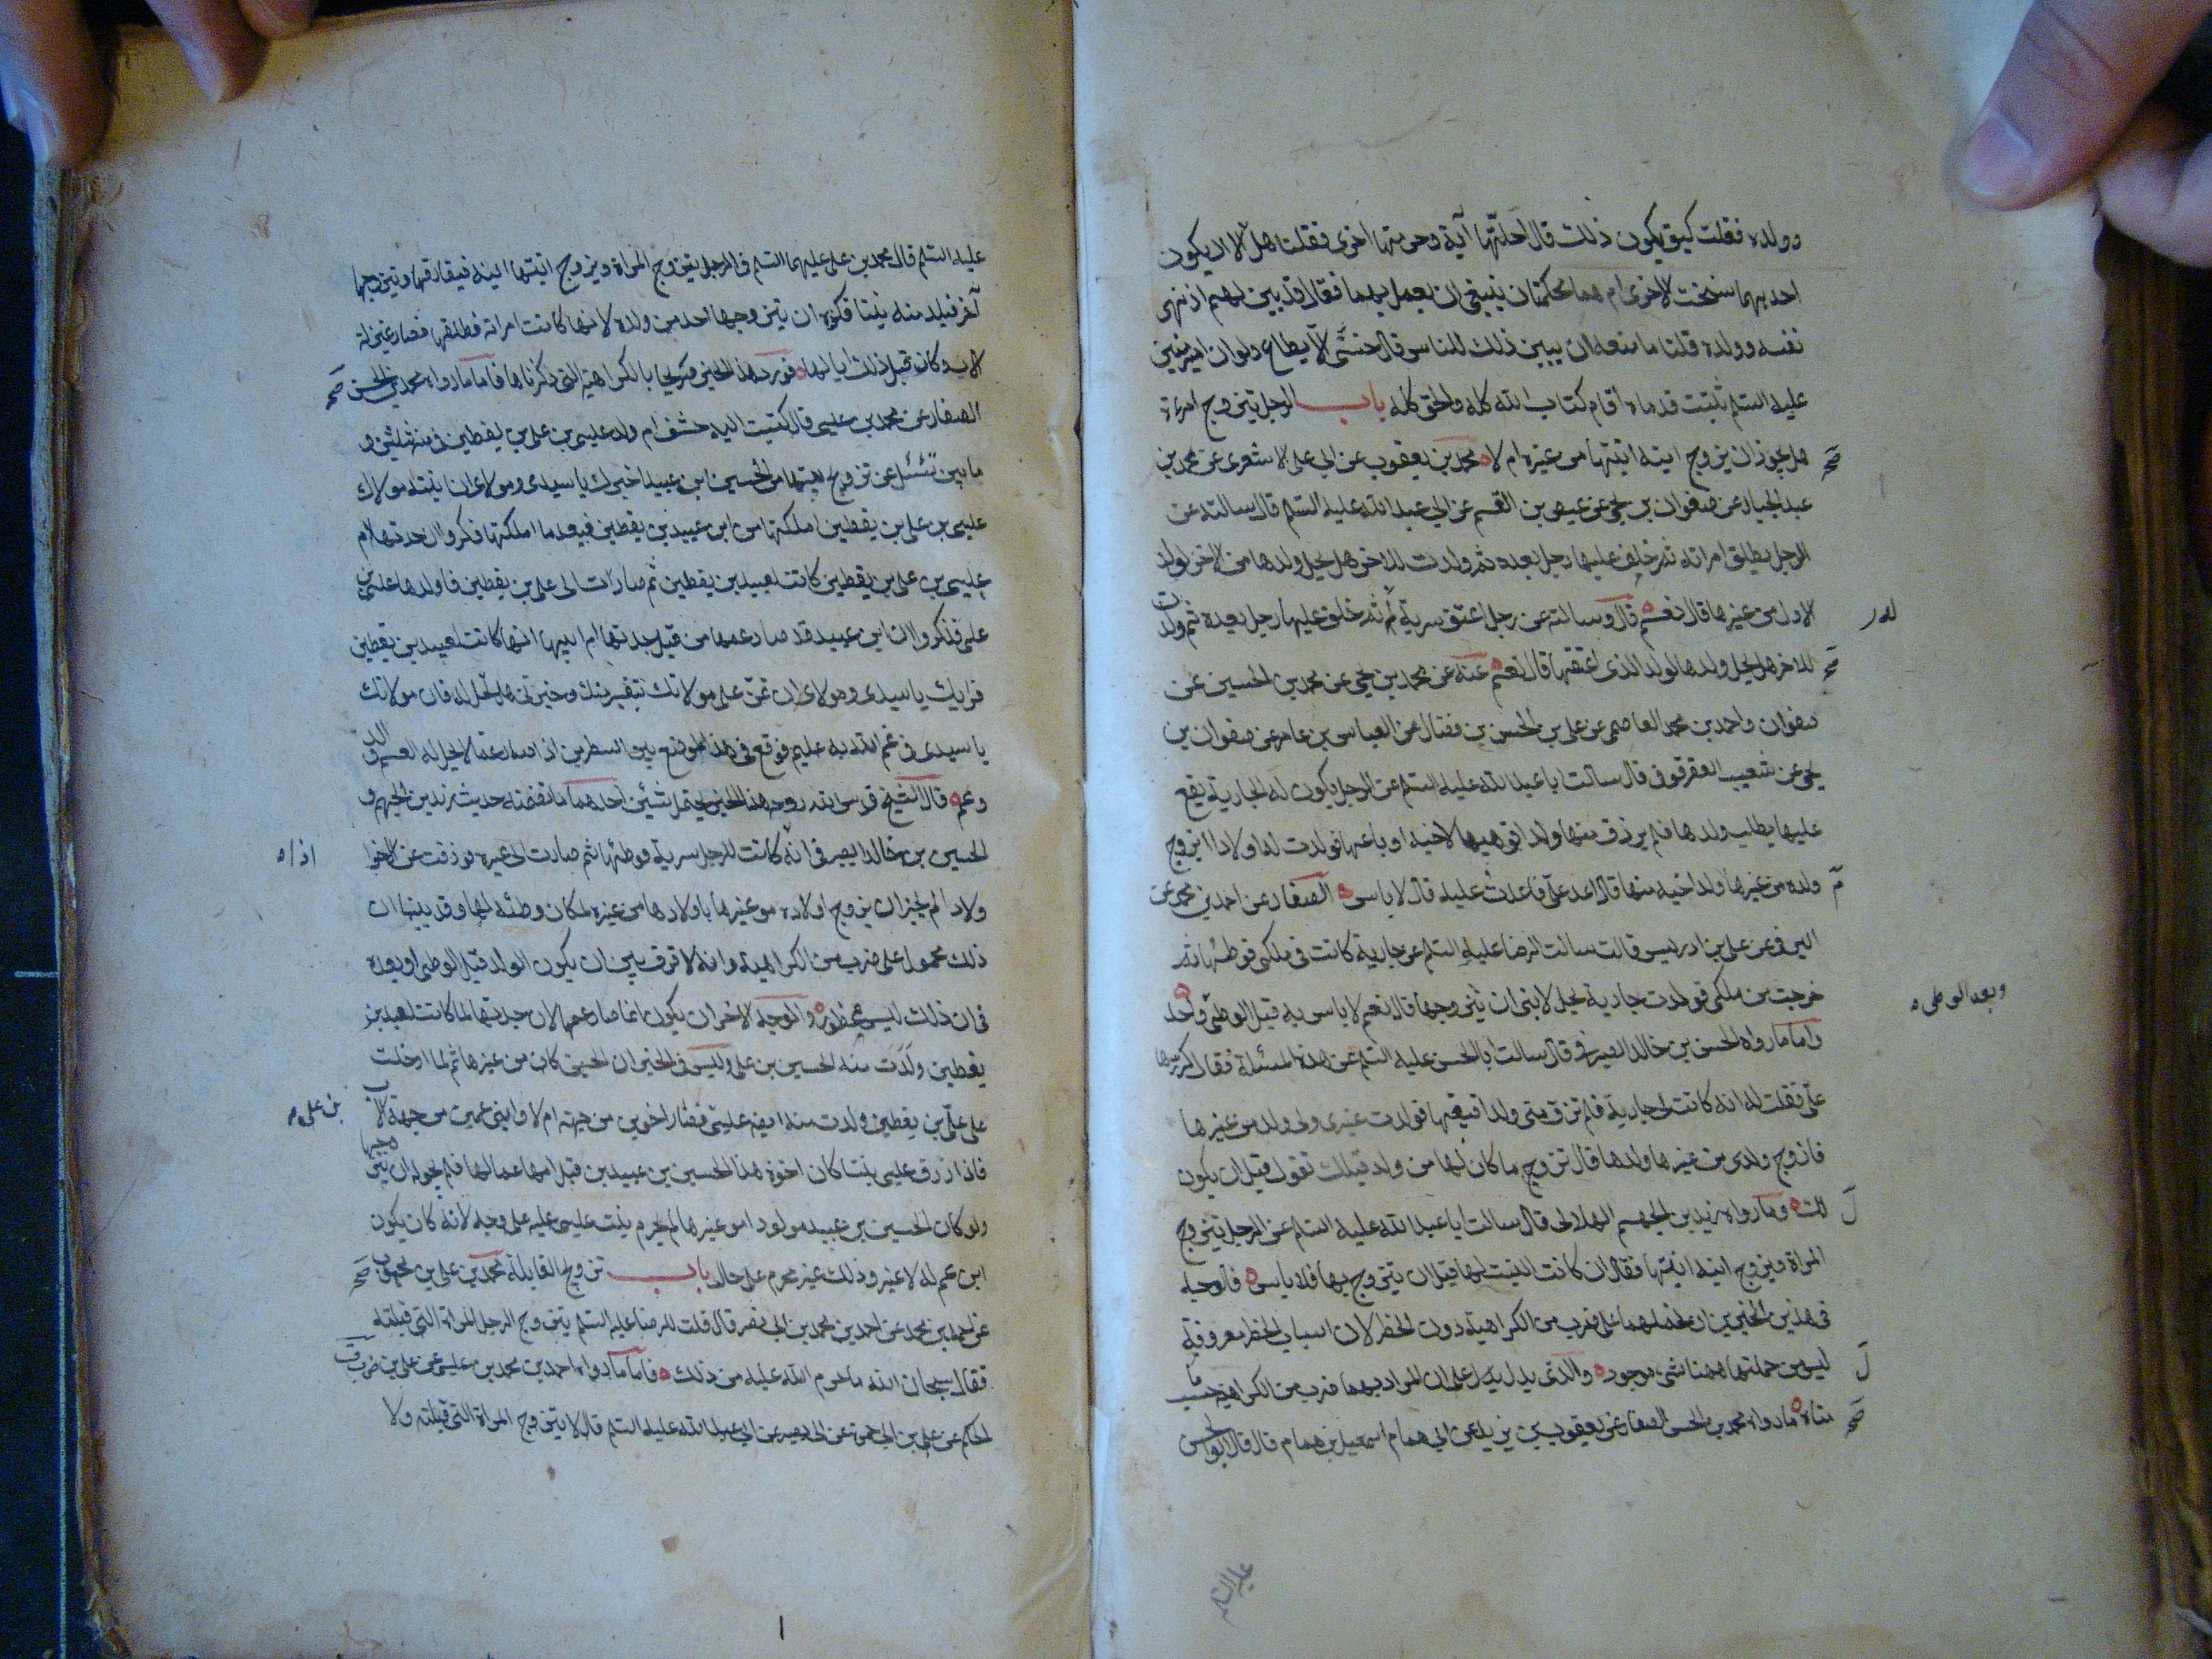 وولده فقلت كيف يكون ذلك قال احلتها آية وحرمتها اخرى فقلنا هل الا ان يكون
احديهما نسخت الاخرى ام هما محكمتان ينبغي ان يعمل بهما فقال قد بين لهم اذ نهى
نفسه وولده قلنا ما منعه ان يبين ذلك للناس قال خشي الا يطاع ولو ان امير المؤمنين
عليه السلم ثبتت قدماه اقام كتاب الله كله والحق كله باب الرجل يتزوج امرءة
هل يجوز ان يزوج ابنه ابنتها من غيره ام لا محمد بن يعقوب عن ابي علي الاشعري عن محمد بن
عبد الجبار عن صفوان بن يحيى عن عيص بن القسم عن ابي عبد الله عليه السلم قال سالته عن
الرجل يطلق امراته ثم خلف عليها رجل بعده ثم ولدت للاخر هل يحل ولدها من الاخر لولد
الاول من غيرها قال نعم قال وسالته عن رجل اعتق سرية له ثم خلف عليها رجل بعده ثم ولدت
للاخر هل يحل ولدها لولد الذي اعتقها قال نعم عنه عن محمد بن يحيى عن محمد بن الحسين عن
صفوان واحمد بن محمد العاصمي عن علي بن الحسن بن فضال عن العباس بن عامر عن صفوان بن
يحيى عن شعيب العقرقوفي قال سالت ابا عبد الله عليه السلم عن الرجل يكون له الجارية يقع
عليها يطلب ولدها فلم يرزق منها ولدا فوهبها لاخيه او باعها فولدت له اولادا ايزوج
ولده من غيرها ولد اخيه منها قال اعد علي فاعدت عليه قال لا باس الصفار عن احمد بن محمد عن
البرقي عن علي بن ادريس قال سالت الرضا عليه السلم عن جارية كانت في ملكي فوطئها ثم
خرجت من ملكي فولدت جارية يحل لابني ان يتزوجها قال نعم لا باس به قبل الوطي واحد
وبعد الوطي
واما ما رواه الحسين بن خالد الصيرفي قال سالت ابا الحسن عليه السلم عن هذه المسئلة فقال كررها
علي فقلت له انه كانت لي جارية فلم ترزق مني ولدا فبعتها فولدت من غيري ولي ولد من غيرها
فازوج ولدي من غيرها ولدها قال تزوج ما كان لها من ولد قبلك تقول قبل ان يكون
لك وما رواه زيد بن الجهيم الهلالي قال سالت ابا عبد الله عليه السلم عن الرجل يتزوج
المراة ويزوج ابنه ابنتها فقال ان كانت البنت لها قبل ان يتزوج بها فلا باس فالوجه
في هذين الخبرين ان نحملهما على ضرب من الكراهية دون الحظر لان اسباب الحظر معروفة
ليس من جملتها ههنا شيء موجود والذي يدل على ان المراد بهما ضرب من الكراهية حسب
ما رواه محمد بن الحسن الصفار عن يعقوب بن يزيد عن ابي همام اسمعيل بن همام قال قال ابو الحسن
عليه السلم قال محمد بن علي عليهما السلم في الرجل يتزوج المراة ويزوج ابنتها ابنه فيفارقها ويتزوجها
آخر فيلد منه بنتا فكره ان يتزوجها احد من ولده لانها كانت امراته فطلقها فصار بمنزلة
الاب وكان قبل ذلك ابا لها فورد هذا الخبر مصرحا بالكراهية التي ذكرناها فاما ما رواه محمد بن الحسن
الصفار عن محمد بن عيسى قال كتبت اليه خشف ام ولد عيسى بن علي بن يقطين في سنة ثلث و
مايتين تسئل عن تزويج ابنتها من الحسين بن عبيد اخبرك يا سيدي ومولاي ان ابنة مولاك
عيسى بن علي بن يقطين املكتها من ابن عبيد بن يقطين فبعد ما املكتها ذكروا ان جدتها ام
عيسى بن علي بن يقطين كانت لعبيد بن يقطين ثم صارت الى علي بن يقطين فاولدها عيسى بن
علي فذكروا ان ابن عبيد قد صار عمها من قبل جدتها ام ابيها انها كانت لعبيد بن يقطين
فرايك يا سيدي ومولاي ان تمن على مولاتك بتفسير منك وخبرني هل تحل له فان مولاتك
يا سيدي في غم الله به عليم فوقع في هذا الموضع بين السطرين اذا صار عما لا يحل له
وعم قال الشيخ قدس الله روحه هذا الخبر يحتمل شيئين احدهما ما تضمنه حديث زيد بن الجهيم و
الحسين بن خالد الصيرفي انه كانت للرجل سرية فوطئها ثم صارت الى غيره فرزقت من الاخر
ولادا لم يجز ان يزوج اولاده من غيرها باولادها من غيره لمكان وطئه لها وقد بينا ان
ذلك محمول على ضرب من الكراهية وانه لا فرق بين ان يكون الولد قبل الوطي او بعده
في ان ذلك ليس بمحظور والوجه الاخر ان يكون انما صار عمها لان جدتها لما كانت لعبيد بن
يقطين ولدت منه الحسين بن علي وليس في الخبر ان الحسين كان من غيرها ثم لما ادخلت
على علي بن يقطين ولدت منه ايضا عيسى فصارا اخوين من جهة ام لا وابني عمين من جهة الاب
بن علي
فاذا رزق عيسى بنتا كان اخوه هذا الحسين بن عبيد من قبل امها عما لها فلم يجز له ان يتزوجها
ولو كان الحسين بن عبيد مولودا من غيرها لم يحرم بنت عيسى عليه على وجه لانه كان يكون
ابن عم له لا غير وذلك غير محرم على حال باب تزويج القابلة محمد بن علي بن محبوب
عن احمد بن محمد عن احمد بن محمد بن ابي نصر قال قلت للرضا عليه السلم يتزوج الرجل المراة التي قبلته
فقال سبحان الله ما حرم الله عليه من ذلك فاما ما رواه احمد بن محمد بن عيسى عن علي بن
الحكم عن علي بن ابي حمزة عن ابي بصير عن ابي عبد الله عليه السلم قال لا يتزوج المراة التي قبلته ولا